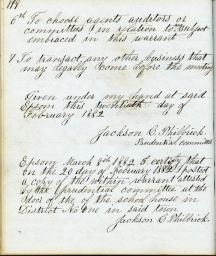 188
6th To choose agents auditors or
committees in relation to subject
embraced in this warrant
7 To transact any other business that
may legally come before the meeting
Given under my hand at said
Epsom this twentieth day of
February 1882
Jackson C. Philbrick
Prudential committee
Epsom March 6th 1882 I certify that
on the 20 day of February 1882 I posted
a copy of the within warrant attested
by the prudential committee at the
door of the of the school house in
District No One in said town
Jackson C. Philbrick